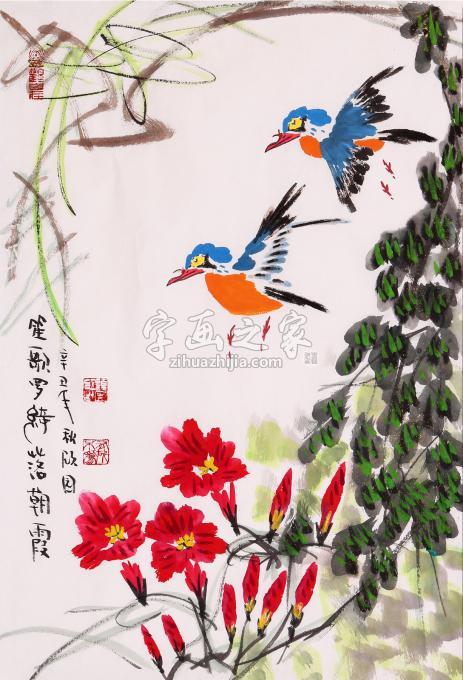 笙歌罗绮落朝霞
辛丑年秋欣园
字画之家
zihuazhijia.com